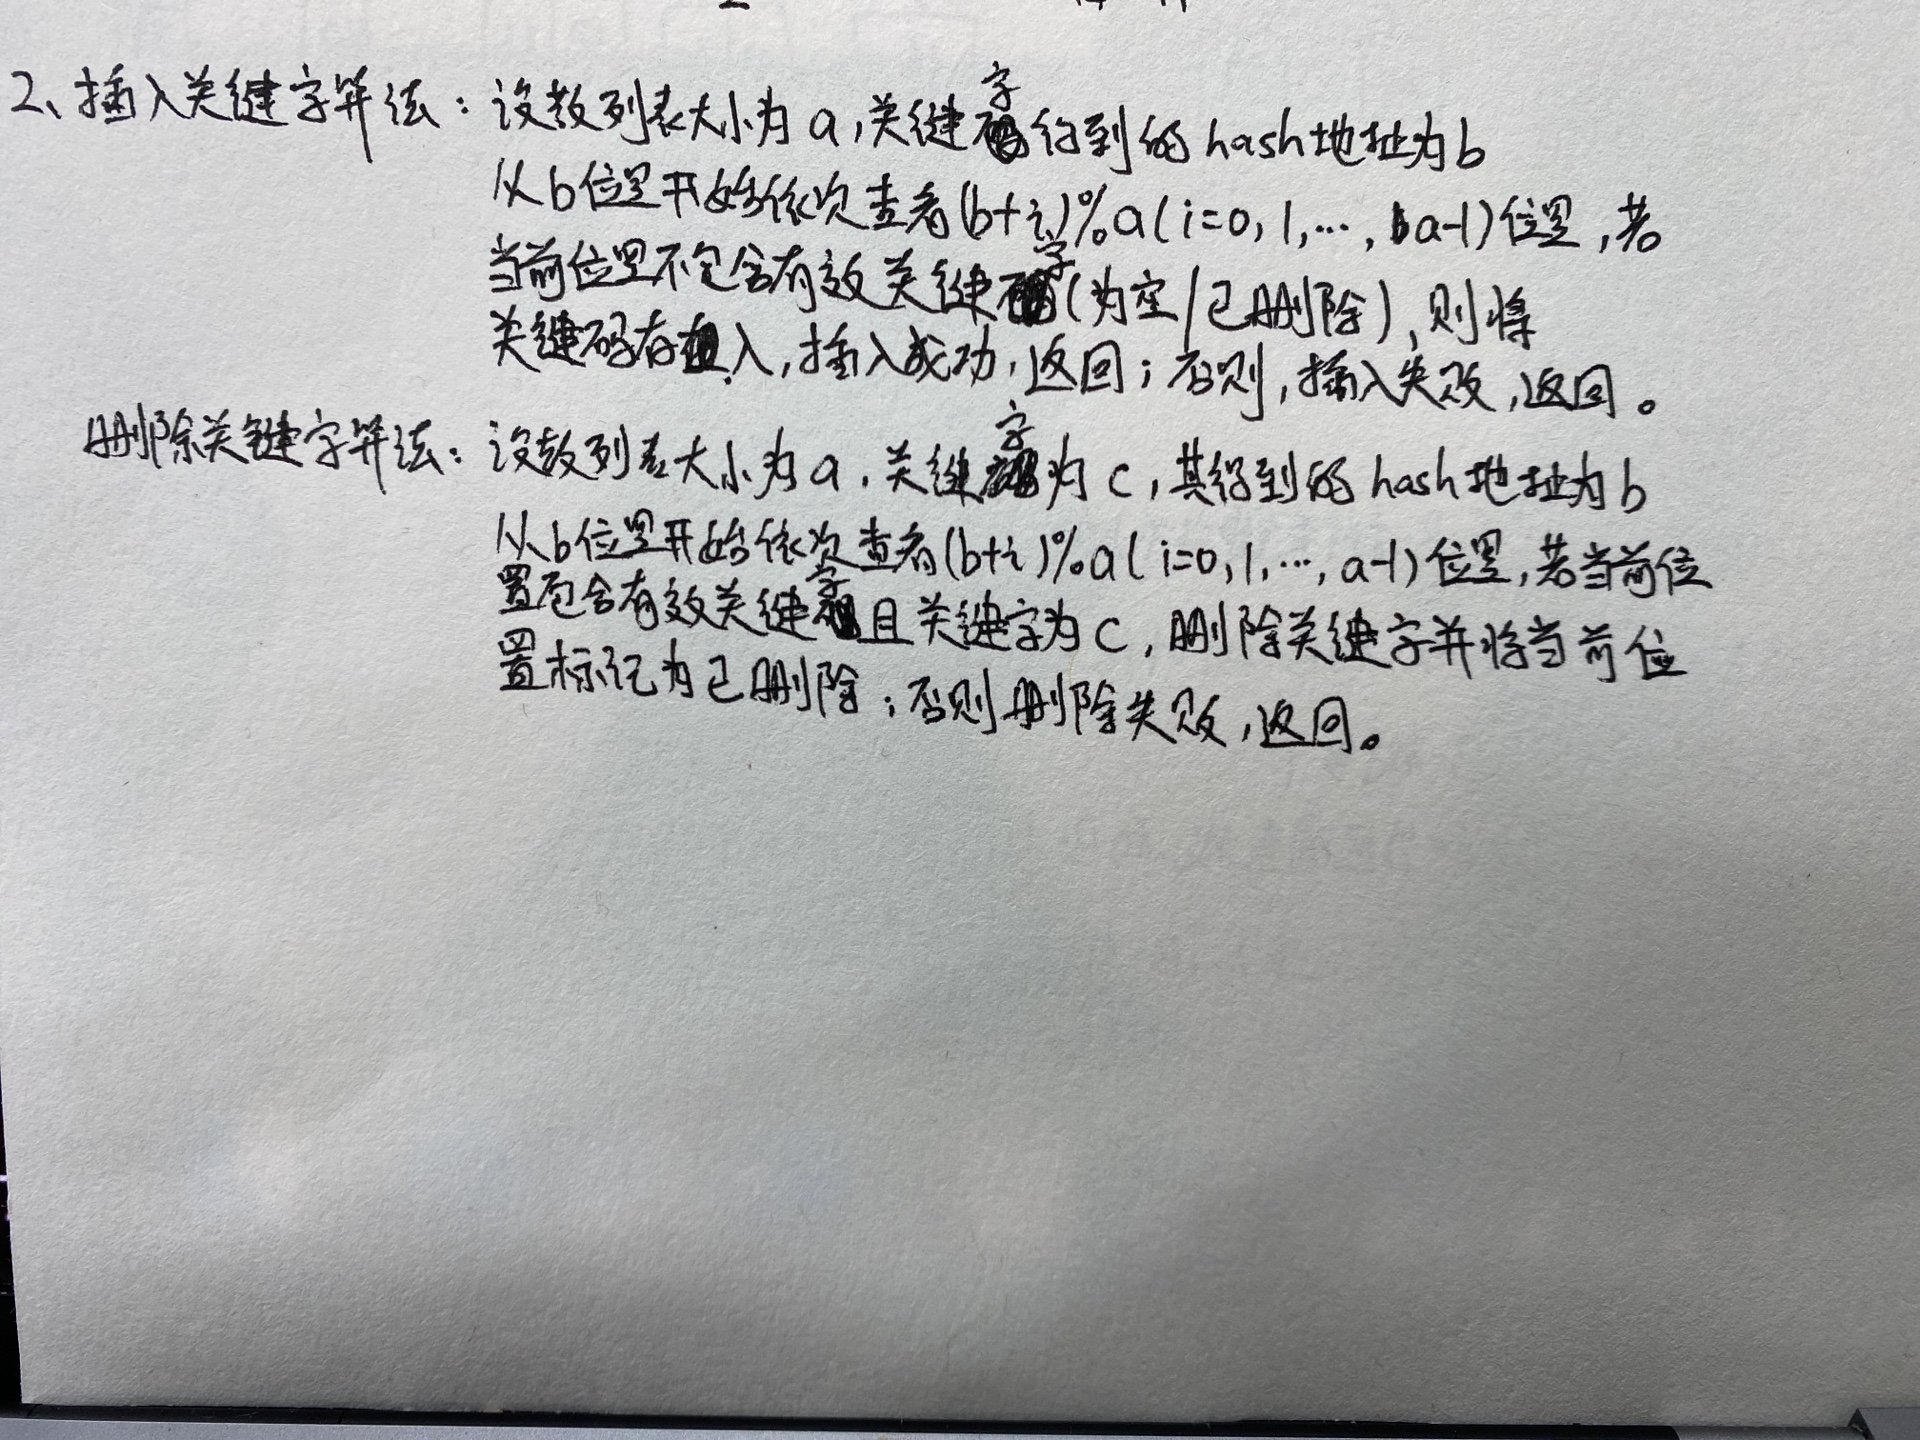 2、插入关键字算法：设散列表大小为a,关键字得到的hash地址为b
从b位置开始依次查看(b+i)%a(i=0,1,…,a-1)位置,若
当前位置不包含有效关键字(为空/已删除),则将
关键码存入,插入成功,返回;否则,插入失败,返回。
删除关键字算法：设散列表大小为a,关键字为c,其得到的hash地址为b
从b位置开始依次查看(b+i)%a(i=0,1,…,a-1)位置,若当前位
置包含有效关键字且关键字为c,删除关键字并将当前位
置标记为已删除;否则删除失败,返回。